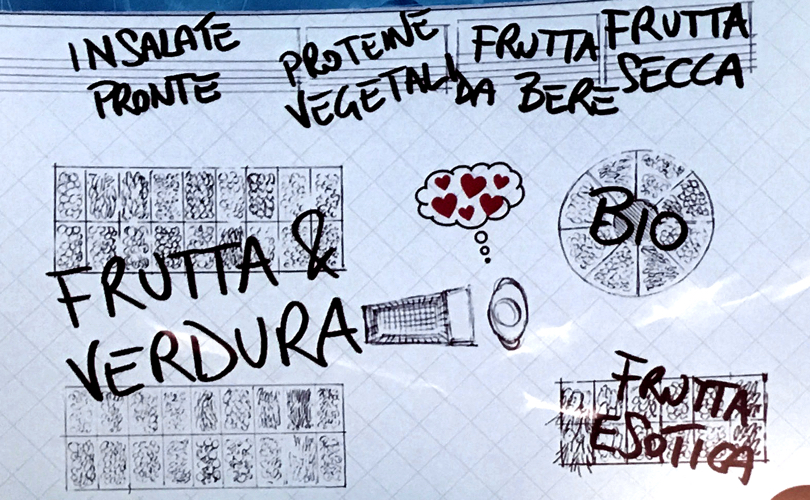 INSALATE
PRONTE
PROTEINE
VEGETALI
FRUTTA
DA BERE
FRUTTA
SECCA
BIO
FRUTTA &
VERDURA
FRUTTA
ESOTICA